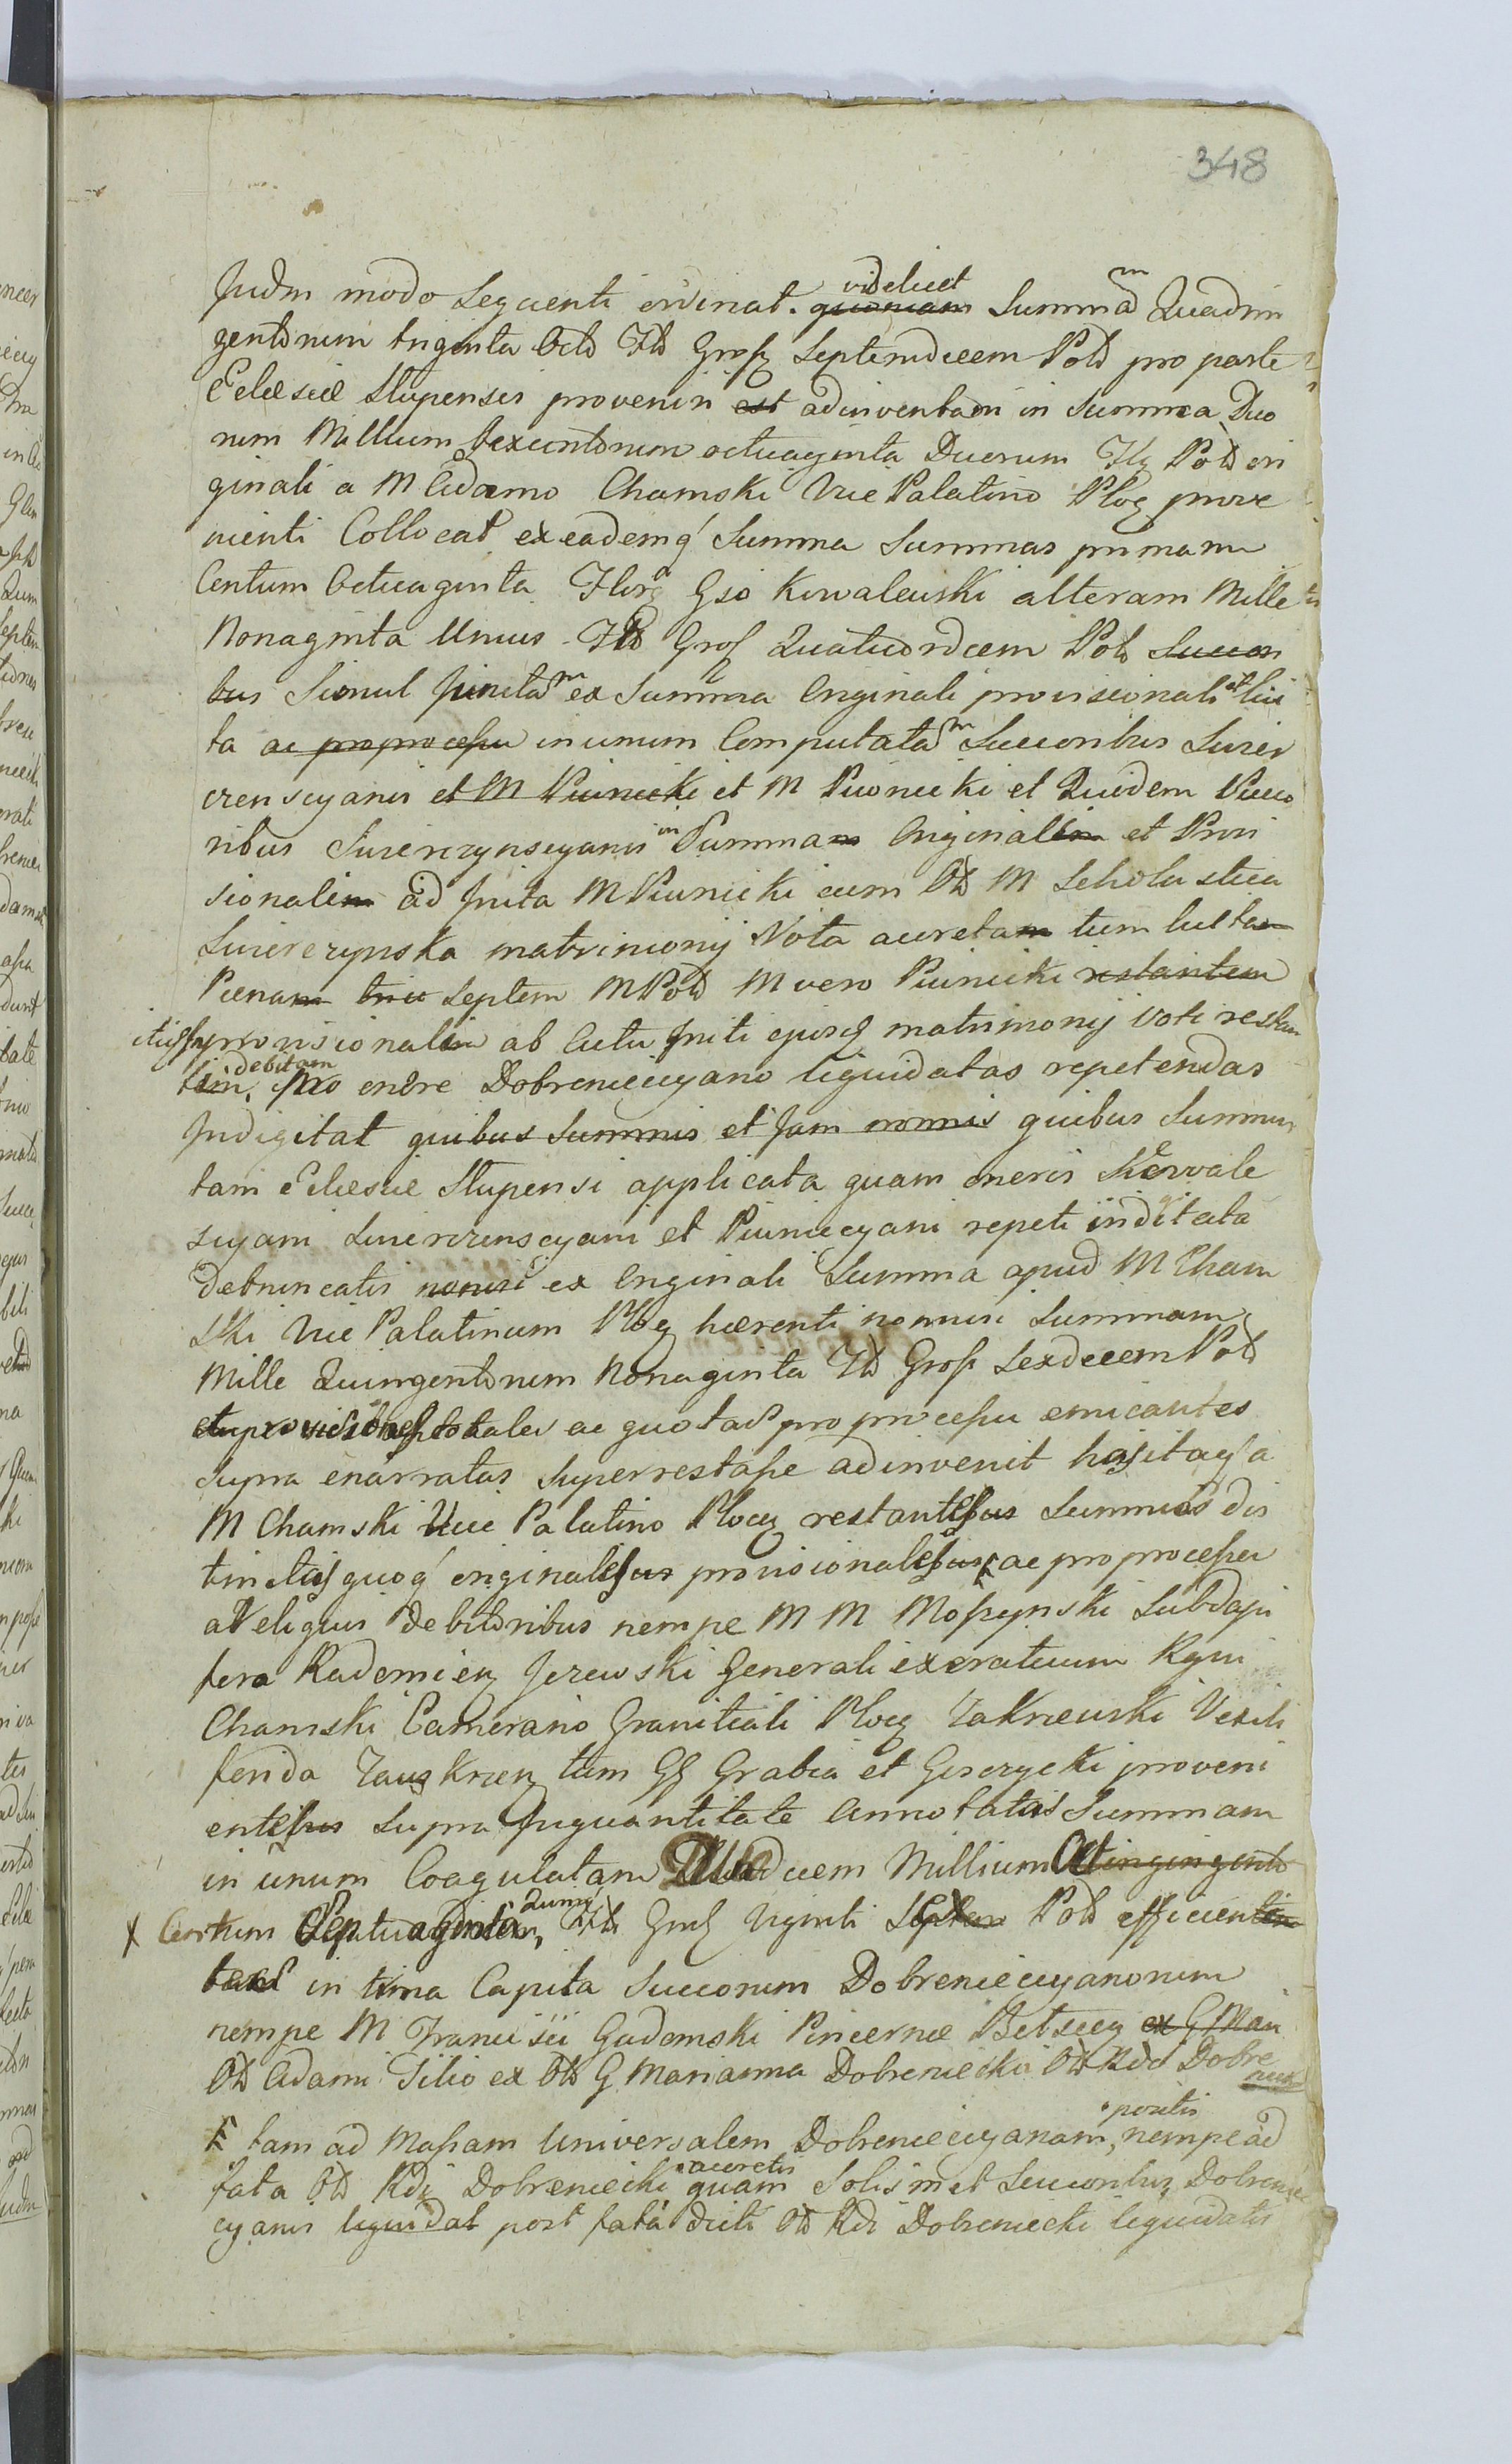 348
Judm modo sequenti ordinat. videlicet quoniam Summam Quadrin
gentorum triginta Octo Flo Gross Septemdecem Pold pro parte
Ecclesiæ Slupensis proveniri est adinventam in Summa Duo
rum Millium Sexcentorum octuaginta Duorum Flg Pold ori
ginali a M Adamo Chamski Vice Palatino Plog prove
nienti Collocat ex eademq Summa Summas primam
Centum Octuaginta Flor Gso Kowalewski alteram Mille
Nonaginta Unius Flo Gros Quatuordecem Pold Succon
bus Simul junctam ex Summa Originali provisionali et lui
ta ac pro processu in unum Computatam Succoribus Swier
czenscyanis et M Piwnicki et M Piwnicki et Quidem Succo
ribus Swierczynscyanis in Summam Originalem et Provi
sionalem ad Inita M Piwnicki cum Old M Scholastica
Swierczynska matrimonij Vota accretam tum luitam
Pænam triu Septem M Pold M vero Piwnicki restantem
provisionalem ab Actu Initi ejusq matrimonij Voti restan
tem, debitam pro onere Dobrenieccyano liquidatas repetendas
Indigitat quibus Summis et jam nonnis quibus Summis
tam Ecclesiæ Slupensi applicata quam oneris Kowale
scyani Swierczenscyani et Piwniccyani repeti indigitata
detruncatis nonnisi ex Originali Summa apud M Cham
ski Vice Palatinum Plog hærenti nonnisi Summam
Mille Quingentorum Nonaginta Flo Gross Sexdecem Pold
provisiones totales ac quotas pro processu emicantes
supra enarratas superrestasse adinvenit hisitaq a
M Chamski Vice Palatino Plocg restantibus Summis dis
tinctis quoq originalibus provisionalibus ac pro processu
a Reliquis Debitoribus nempe M M Moszynski Subdapi
fero Radomieng Jezewski Generali exeratuum Rgni
Chamski Camerario Granitiali Plocg Zakrzewski Vexili
ferida Zawskrzen tum GG Grabia et Giserzycki proveni
entibus supra inquantitate Annotatis Summam
in unum Coagulatam Duodecem Millium
X Centum Septuaginta Flo Gros Viginti Septem Pold efficientem
in trina Capita Succorum Dobrenieccyanorum
nempe M Francisci Gadomski Pincernæ Belscey ex G Mari
Old Adami Filio ex Old G Marianna Dobreniecka Old Rdo Dobre
niecki
tam ad Massam Universalem Dobrenieccyanam, positis nempe ad
fata Old Rdi Dobreniecki accretis quam Solismet Succoribus Dobreniec
cyanis liquidat post fata dicti Old Rdi Dobreniecki liquidatis